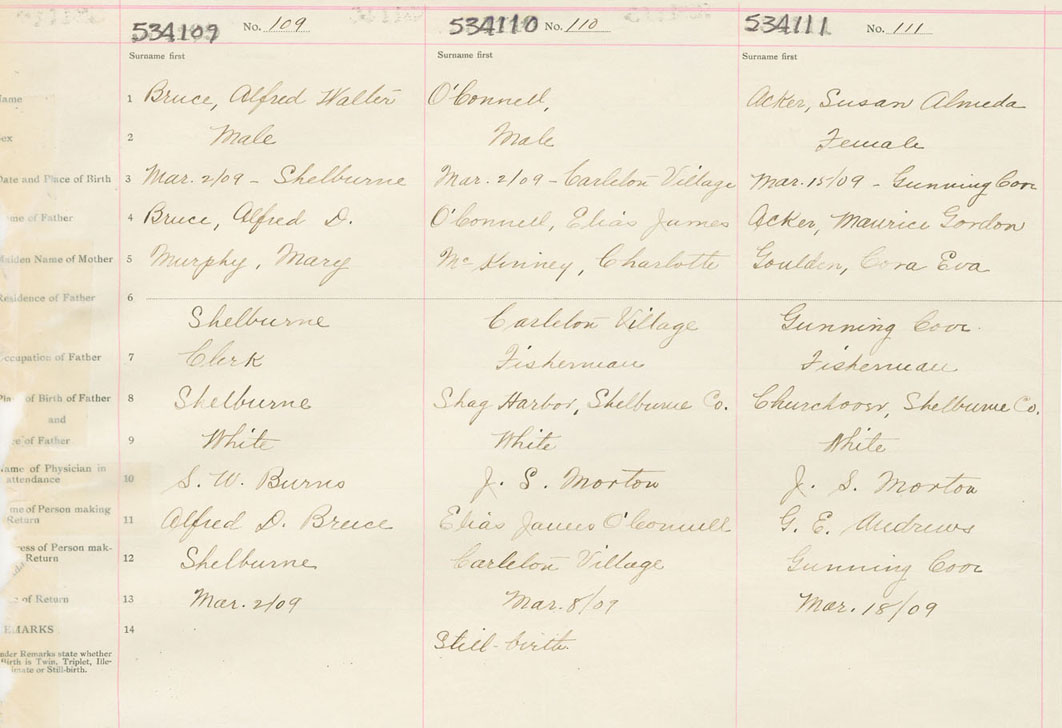 534109 No. 109
534110 No. 110
534111 No. 111
Surname first Surname first Surname first
1 Bruce, Alfred Walter O'Connell, Acker, Susan Almeda
2 Male Male Female
Date and Place of Birth 3 Mar. 2/09 - Shelburne Mar. 2/09 - Carleton Village Mar. 15/09 - Gunning Cove
of Father 4 Bruce, Alfred D. O'Connell, Elias James Acker, Maurice Gordon
Name of Mother 5 Murphy, Mary McKinney, Charlotte Goulden, Cora Eva
Residence of Father 6
Shelburne Carleton Village Gunning Cove
of Father 7 Clerk Fisherman Fisherman
of Birth of Father 8 Shelburne Shag Harbor, Shelburne Co. Churchover, Shelburne Co.
and
of Father 9 White White White
of Physician in
attendance 10 S. W. Burns J. S. Morton J. S. Morton
of Person making
Return 11 Alfred D. Bruce Elias James O'Connell G. E. Andrews
of Person mak-
Return 12 Shelburne Carleton Village Gunning Cove
of Return 13 Mar. 2/09 Mar. 8/09 Mar. 18/09
EMARKS 14 Still-birth
nder Remarks state whether
Birth is Twin, Triplet, Ille-
or Still-birth.